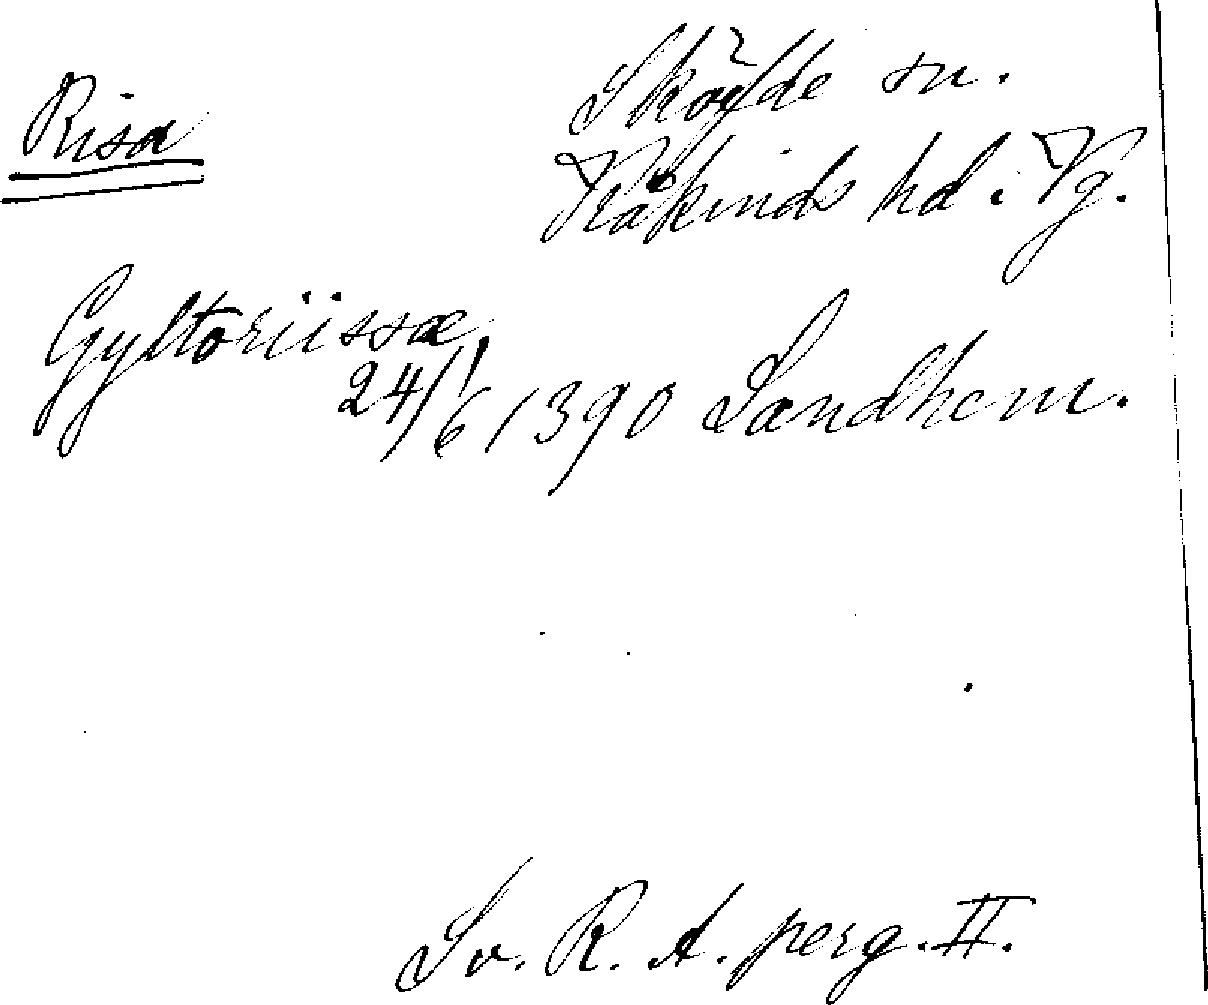 Risa
Sköfde sn.
Kåkinds hd. Vg.
Gyltoriissæ,
24/6 1390 Sandhem.
Sv. R. A. perg. II.